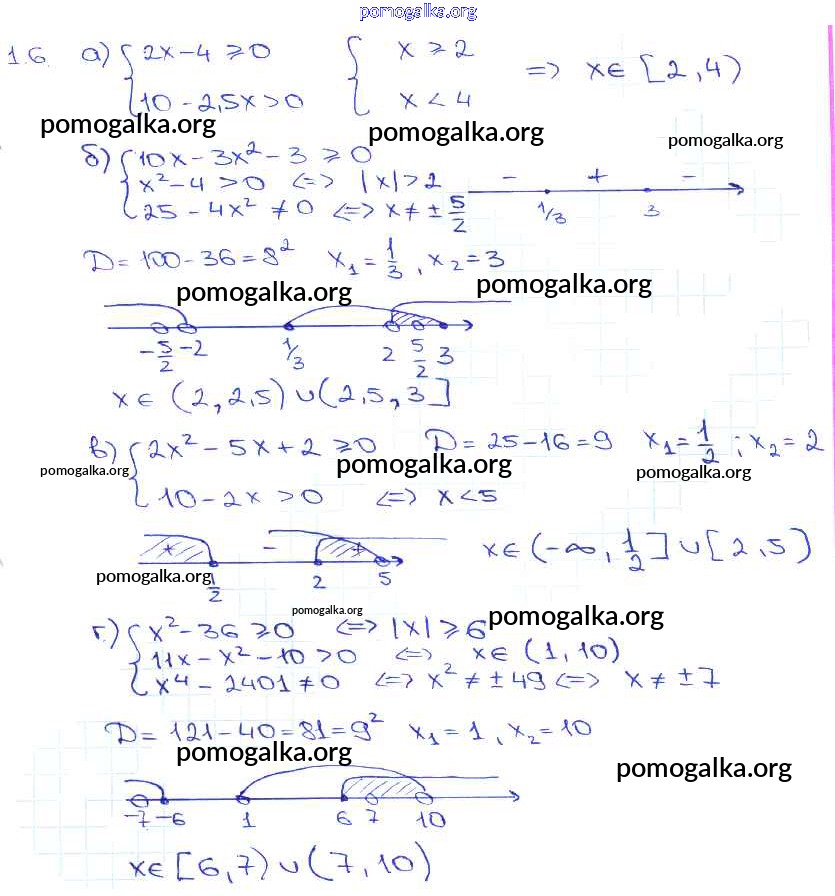 pomogalka.org
1.6. а) { 2x-4 ≥ 0 { x ≥ 2 => x∈ [2,4)
10-2,5x>0 x < 4
pomogalka.org pomogalka.org pomogalka.org
б) { 10x-3x²-3 ≥ 0
x²-4 >0 <=> |x|>2 - + -
25-4x² ≠ 0 <=> x≠ ± 5/2 1/3 3
D = 100-36 = 8² x₁ = 1/3, x₂ = 3
pomogalka.org pomogalka.org
-5/2 -2 1/3 2 5/2 3
x∈ (2, 2,5) ∪ (2,5, 3]
в) { 2x²-5x+2 ≥ 0 D = 25-16 = 9 x₁ = 1/2; x₂ = 2
pomogalka.org pomogalka.org pomogalka.org
10-2x >0 <=> x<5
+ - + x∈ (-∞, 1/2] ∪ [2,5)
pomogalka.org 1/2 2 5
pomogalka.org pomogalka.org
г.) { x²-36 ≥ 0 <=> |x| ≥ 6
11x-x²-10 >0 <=> x∈ (1,10)
x⁴-2401 ≠ 0 <=> x² ≠ ±49 <=> x ≠ ±7
D = 121-40 = 81 = 9² x₁ = 1, x₂ = 10
pomogalka.org pomogalka.org
-7 -6 1 6 7 10
x∈ [6,7) ∪ (7,10)